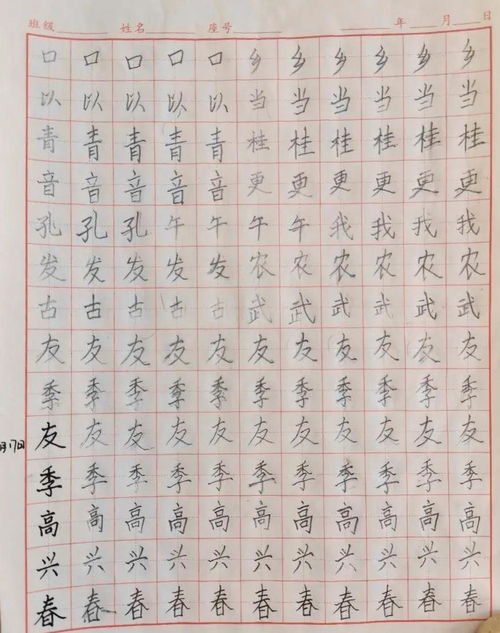 班级 姓名 座号 年 月 日
口口口口口乡乡乡乡乡乡
以以以以以当当当当当当
青青青青青桂桂桂桂桂桂
音音音音音更更更更更更
孔孔孔午午午午我我我我
发发发发发农农农农农农
古古古古古武武武武武武
友友友友友友友友友友友
季季季季季季季季季季季
月17日 友友友友友友友友友友友
季季季季季季季季季季季
高高高高高高高高高高高
兴兴兴兴兴兴兴兴兴兴兴
春春春春春春春春春春春